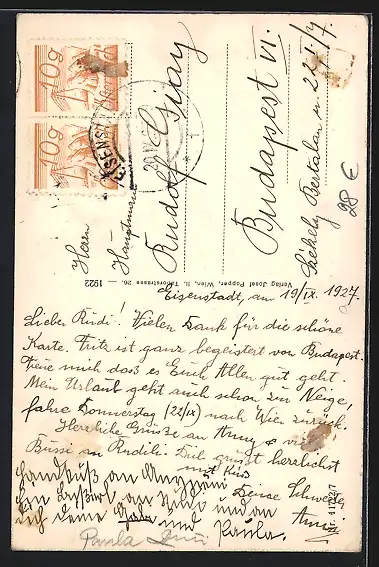 10g
10g
EISENST
Herrn
Hauptmann
Rudolf
Budapest VI.
Székely Bertalan u 22 I/7
28 €
Verlag Josef Popper, Wien, II. Taborstrasse 26. — 1922
Eisenstadt, am 19/IX. 1927.
Lieber Rudi! Vielen Dank für die schöne
Karte. Fritz ist ganz begeistert von Budapest.
Freue mich daß es Euch Allen gut geht.
Mein Urlaub geht auch schon zur Neige,
fahre Donnerstag (22/IX) nach Wien zurück.
Herzliche Grüße an Anny & viele
Bussi an Rudili. Dich grüßt herzlichst
mit Kuß
Deine Schwester
Handkuß an
Ein Busserl an und an
dich deine und Paula.
Paula
41722/7